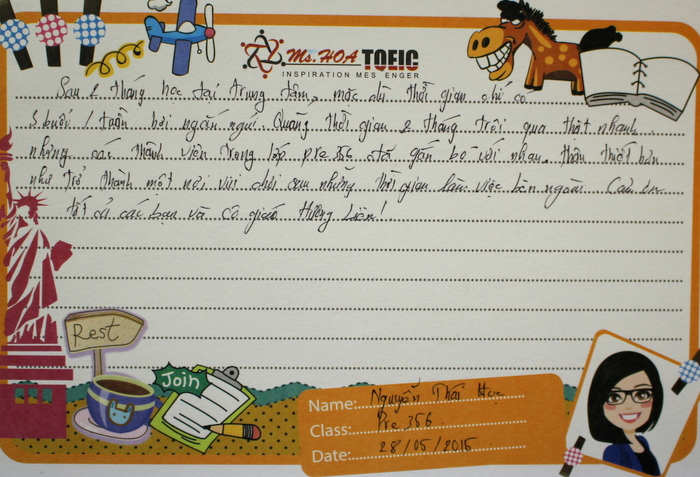 Ms. HOA TOEIC
INSPIRATION MES ENGER
Sau 2 tháng học tại trung tâm, mặc dù thời gian chỉ có
3 buổi 1 tuần hơi ngắn ngủi. Quãng thời gian 2 tháng trôi qua thật nhanh.
nhưng các thành viên trong lớp pre 356 đã gắn bó với nhau, thân thiết hơn
như trở thành một nơi vui chơi sau những thời gian làm việc bên ngoài. Cảm ơn
tất cả các bạn và cô giáo Hương Liên!
Rest
Join
Name: Nguyễn Thái Học
Class: Pre 356
Date: 28/05/2015